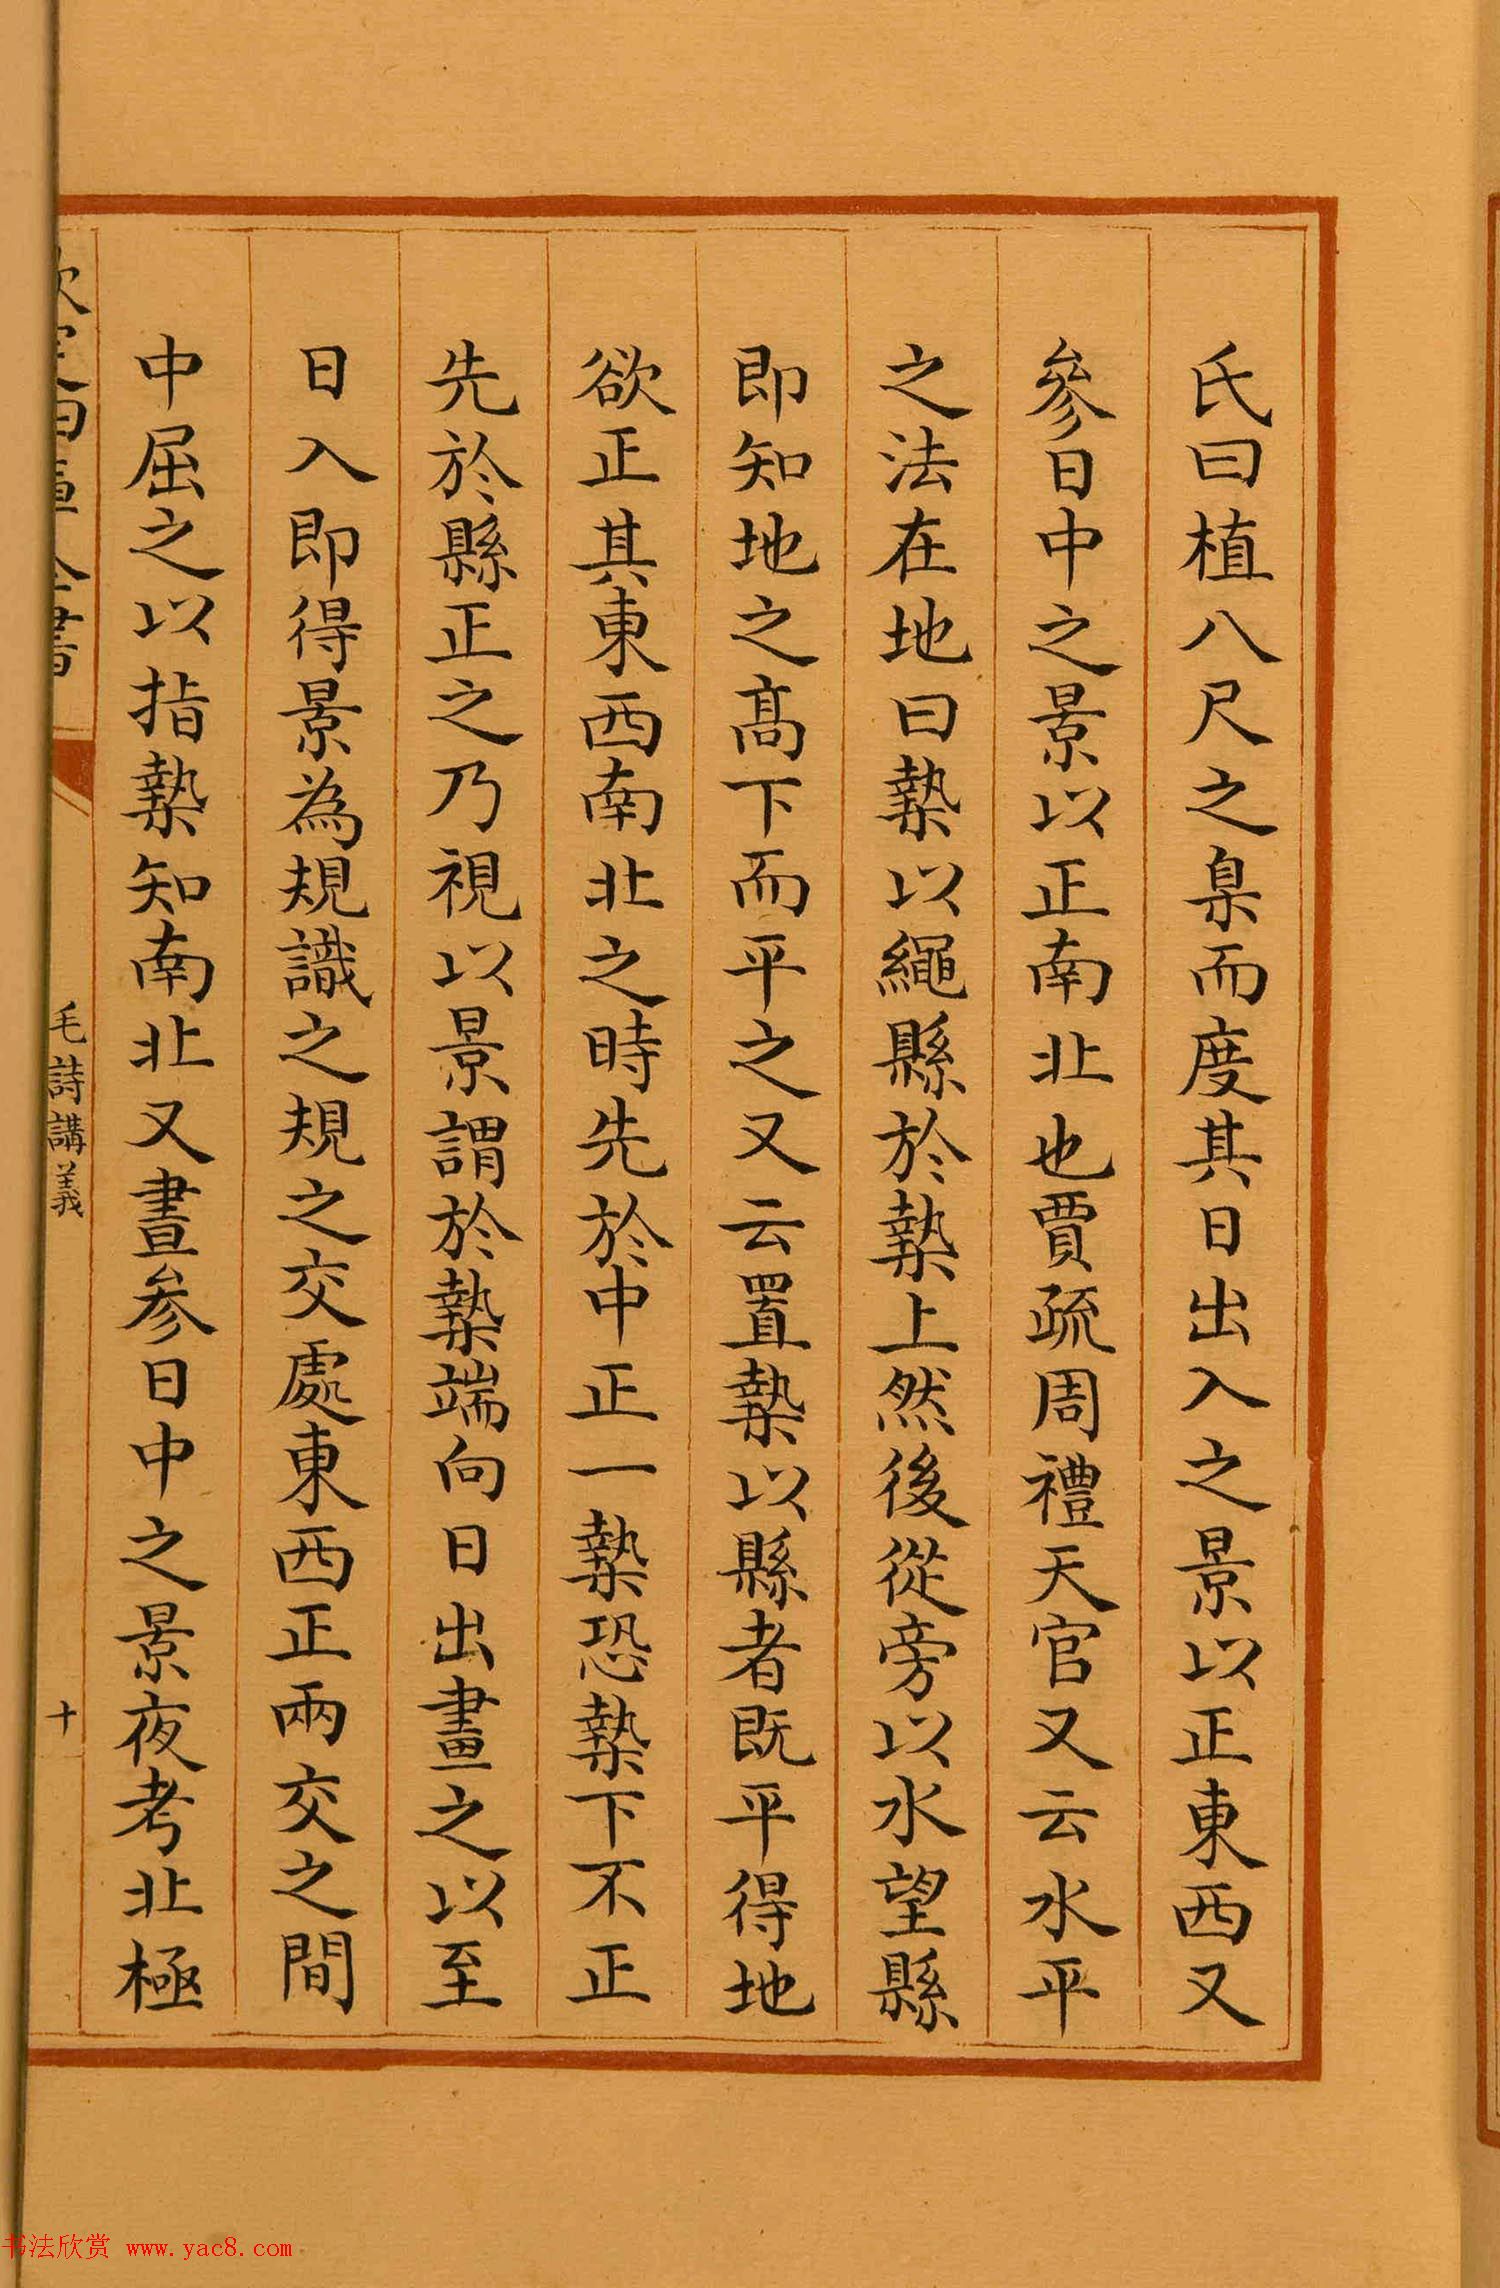 氏曰植八尺之臬而度其日出入之景以正東西又
參日中之景以正南北也賈疏周禮天官又云水平
之法在地曰槷以繩縣於槷上然後從旁以水望縣
即知地之髙下而平之又云置槷以縣者既平得地
欲正其東西南北之時先於中正一槷恐槷下不正
先於縣正之乃視以景謂於槷端向日出畫之以至
日入即得景為規識之規之交處東西正兩交之間
中屈之以指槷知南北又晝参日中之景夜考北極
欽定四庫全書
毛詩講義
十
书法欣赏 www.yac8.com